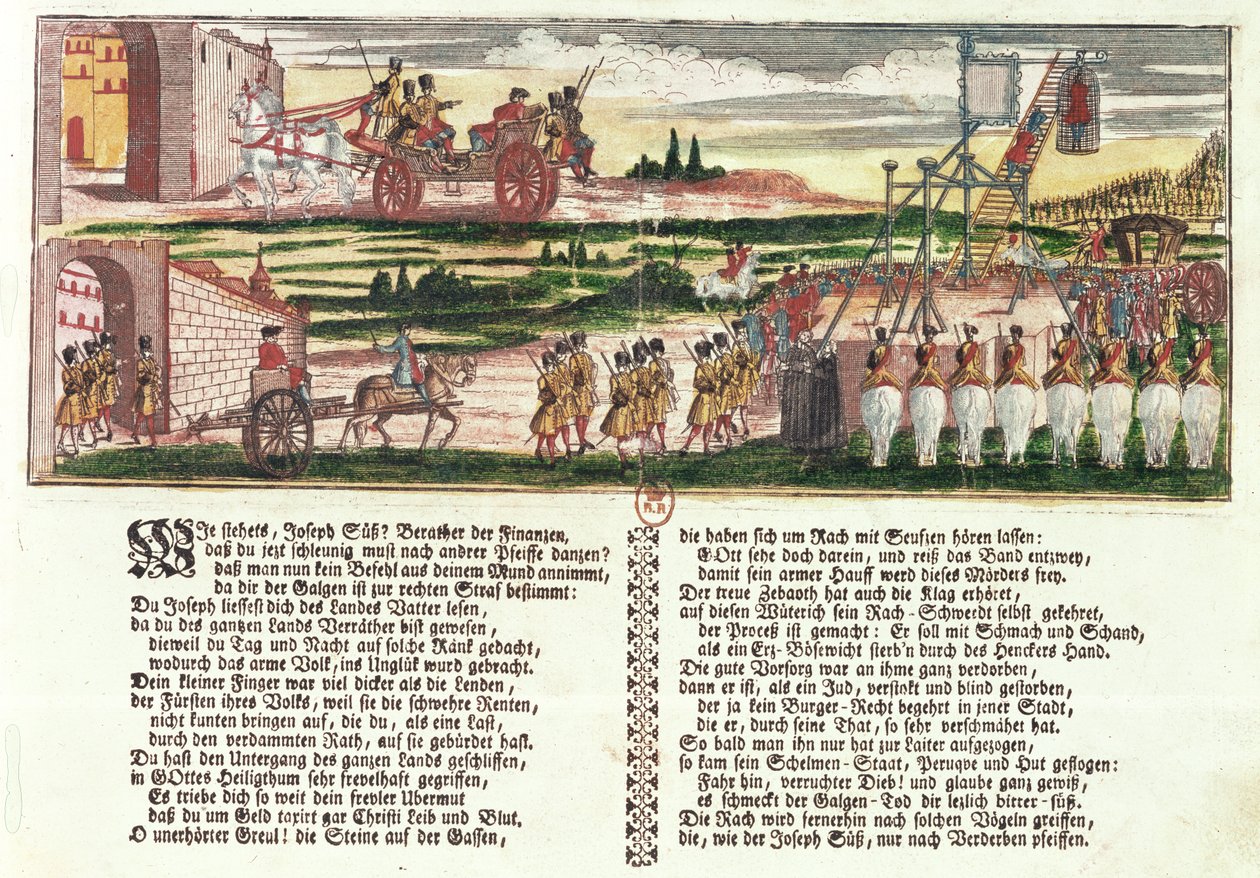 WIe stehets, Joseph Süß? Berather der Finanzen,
daß du jezt schleunig must nach andrer Pfeiffe danzen?
daß man nun kein Befehl aus deinem Mund annimmt,
da dir der Galgen ist zur rechten Straf bestimmt:
Du Joseph liessest dich des Landes Vatter lesen,
da du des gantzen Lands Verräther bist gewesen,
dieweil du Tag und Nacht auf solche Ränk gedacht,
wodurch das arme Volk, ins Unglük wurd gebracht.
Dein kleiner Finger war viel dicker als die Lenden,
der Fürsten ihres Volks, weil sie die schwehre Renten,
nicht kunten bringen auf, die du, als eine Last,
durch den verdammten Rath, auf sie gebürdet hast.
Du hast den Untergang des ganzen Lands geschliffen,
in GOttes Heiligthum sehr frevelhaft gegriffen,
Es triebe dich so weit dein frevler Ubermut
daß du um Geld taxirt gar Christi Leib und Blut.
O unerhörter Greul! die Steine auf der Gassen,
die haben sich um Rach mit Seufzen hören lassen:
GOtt sehe doch darein, und reiß das Band entzwey,
damit sein armer Hauff werd dieses Mörders frey.
Der treue Zebaoth hat auch die Klag erhöret,
auf diesen Wüterich sein Rach-Schwerdt selbst gekehret,
der Proceß ist gemacht: Er soll mit Schmach und Schand,
als ein Erz-Bösewicht sterb'n durch des Henckers Hand.
Die gute Vorsorg war an ihme ganz verdorben,
dann er ist, als ein Jud, verstokt und blind gestorben,
der ja kein Burger-Recht begehrt in jener Stadt,
die er, durch seine That, so sehr verschmähet hat.
So bald man ihn nur hat zur Laiter aufgezogen,
so kam sein Schelmen-Staat, Peruqve und Hut geflogen:
Fahr hin, verruchter Dieb! und glaube ganz gewiß,
es schmeckt der Galgen-Tod dir lezlich bitter-süß.
Die Rach wird fernerhin nach solchen Vögeln greiffen,
die, wie der Joseph Süß, nur nach Verderben pfeiffen.